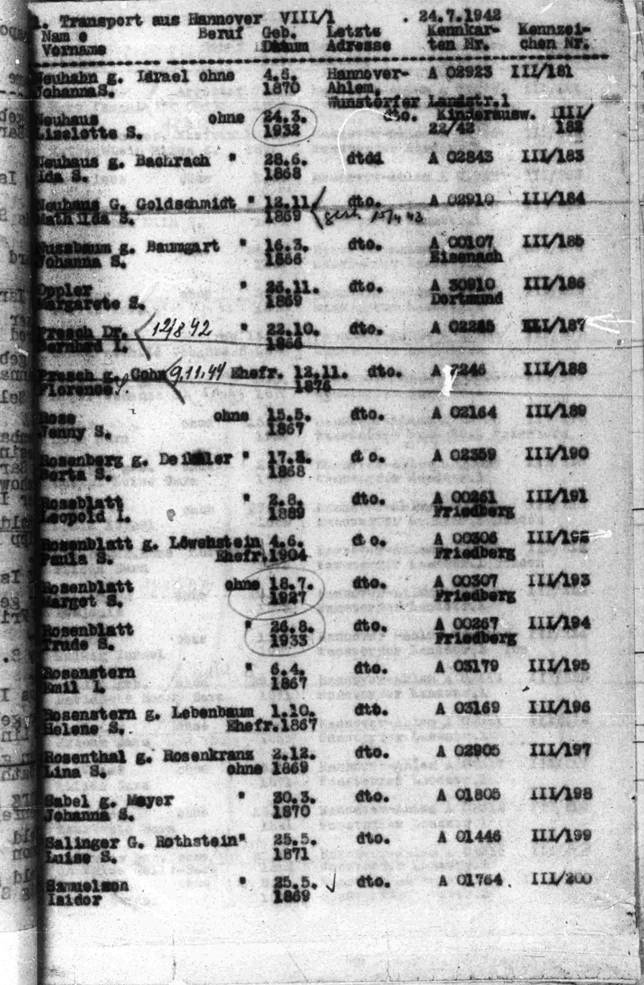 1. Transport aus Hannover VIII/1 . 24.7.1942
Name Beruf Geb. Letzte Kennkar- Kennzei-
Vorname Datum Adresse ten Nr. chen Nr.
Neuhahn g. Israel ohne 4.6. Hannover- A 02923 III/181
Johanna S. 1870 Ahlem,
Wunstorfer Landstr.1
Neuhaus ohne 24.3. dto. Kinderausw. III/
Liselotte S. 1932 22/42 182
Neuhaus g. Bachrach " 28.6. A 02843 III/183
Ida S. 1868
Neuhaus G. Goldschmidt " 12.11 dto. A 02910 III/184
Mathilda S. 1869 gest. 15/4 43
Nussbaum g. Baumgart " 16.3. dto. A 00107 III/185
Johanna S. 1866 Eisenach
Oppler " 26.11. dto. A 30910 III/186
Margarete S. 1869 Dortmund
Prasch Dr. 12/8 42 " 22.10. dto. A III/187
Bernhard I. 1866
Prasch g. Cohn 9.11.44 Ehefr. 12.11. dto. A 7246 III/188
Florence 1876
Rose ohne 15.5. dto. A 02164 III/189
Jenny S. 1867
Rosenberg g. " 17.8. d o. A 02359 III/190
Berta S. 1868
Roseblatt " 2.8. dto. A 00261 III/191
Leopold I. 1889 Friedberg
Rosenblatt g. Löwenstein 4.6. d o. A 00306 III/192
Paula S. Ehefr.1904 Friedberg
Rosenblatt ohne 18.7. dto. A 00307 III/193
Margot S. 1927 Friedberg
Rosenblatt " 26.8. dto. A 00267 III/194
Trude S. 1933 Friedberg
Rosenstern " 6.4. dto. A 03179 III/195
Emil I. 1867
Rosenstern g. Lebenbaum 1.10. dto. A 03169 III/196
Helene S. Ehefr.1867
Rosenthal g. Rosenkranz 2.12. dto. A 02905 III/197
Lina S. ohne 1869
Sabel g. Mayer " 30.3. dto. A 01805 III/198
Johanna S. 1870
Salinger G. Rothstein " 25.5. dto. A 01446 III/199
Luise S. 1871
Samuelson " 25.5. dto. A 01764 III/200
Isidor 1869